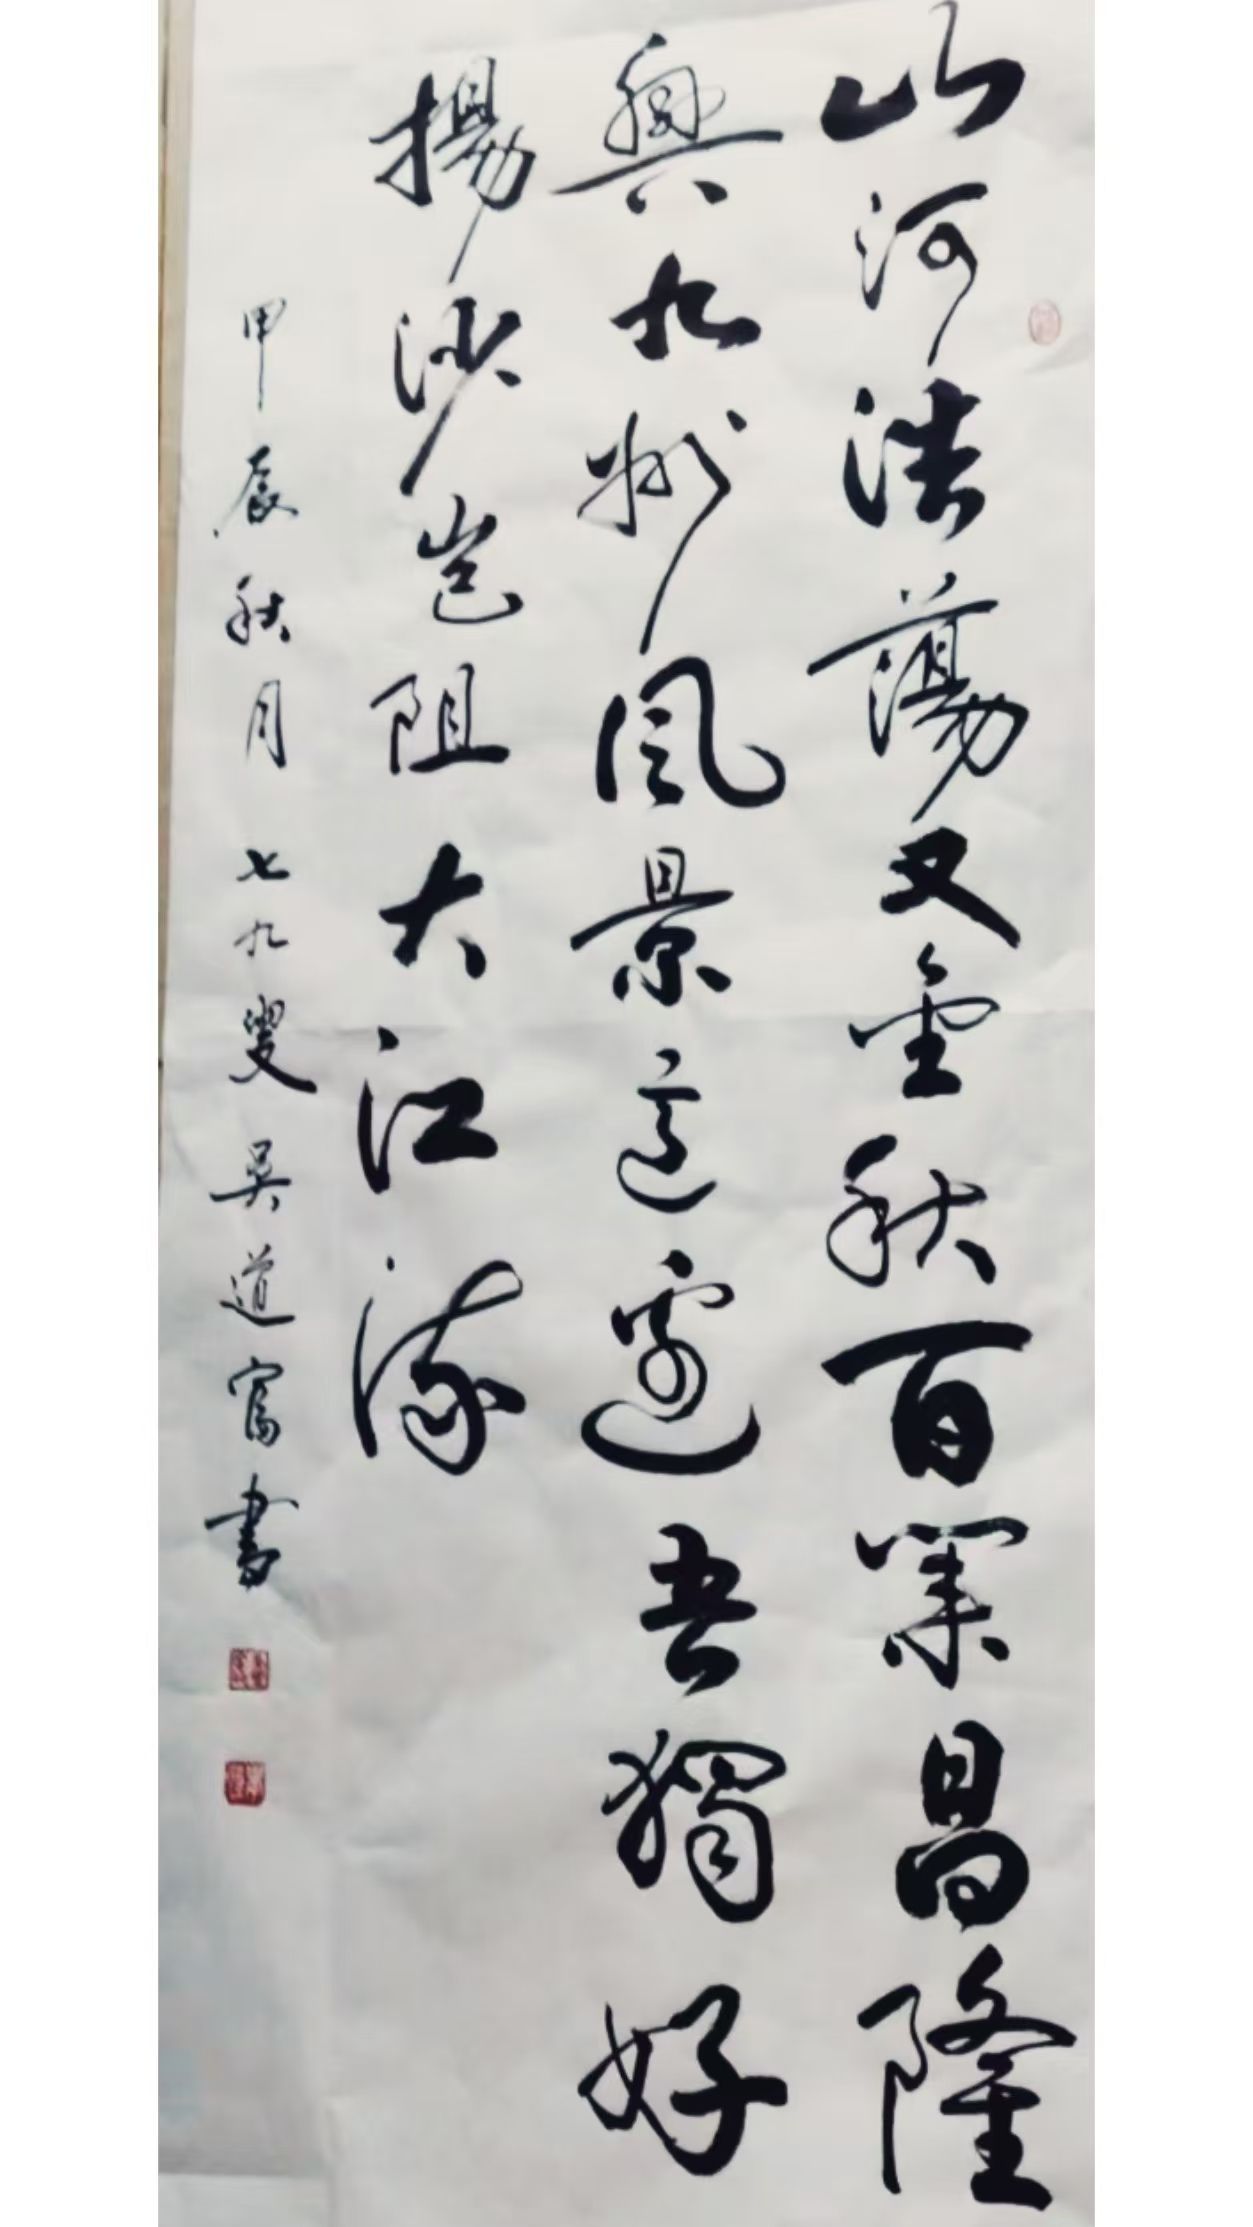 山河浩蕩又金秋百業昌隆
興九州風景這邊吾獨好
揚沙豈阻大江流
甲辰秋月七九叟吳道富書